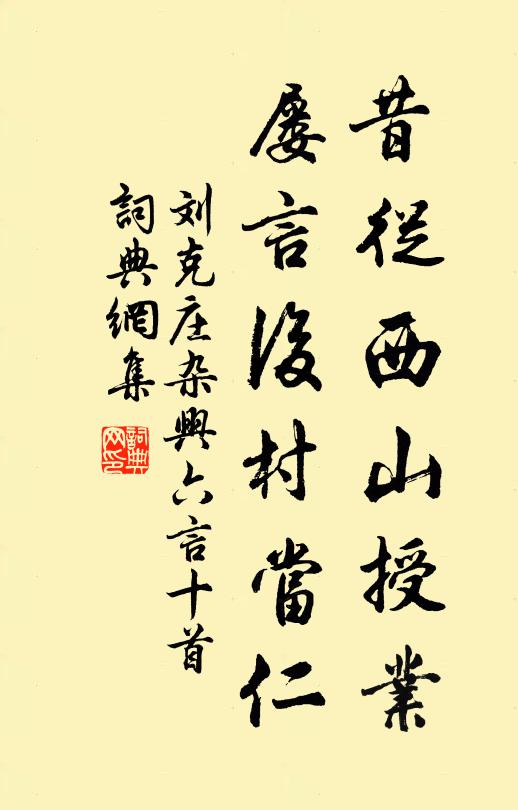 昔從西山授業
屢言後村當仁
刘克庄杂興六言十首
詞典網集
詞典网印